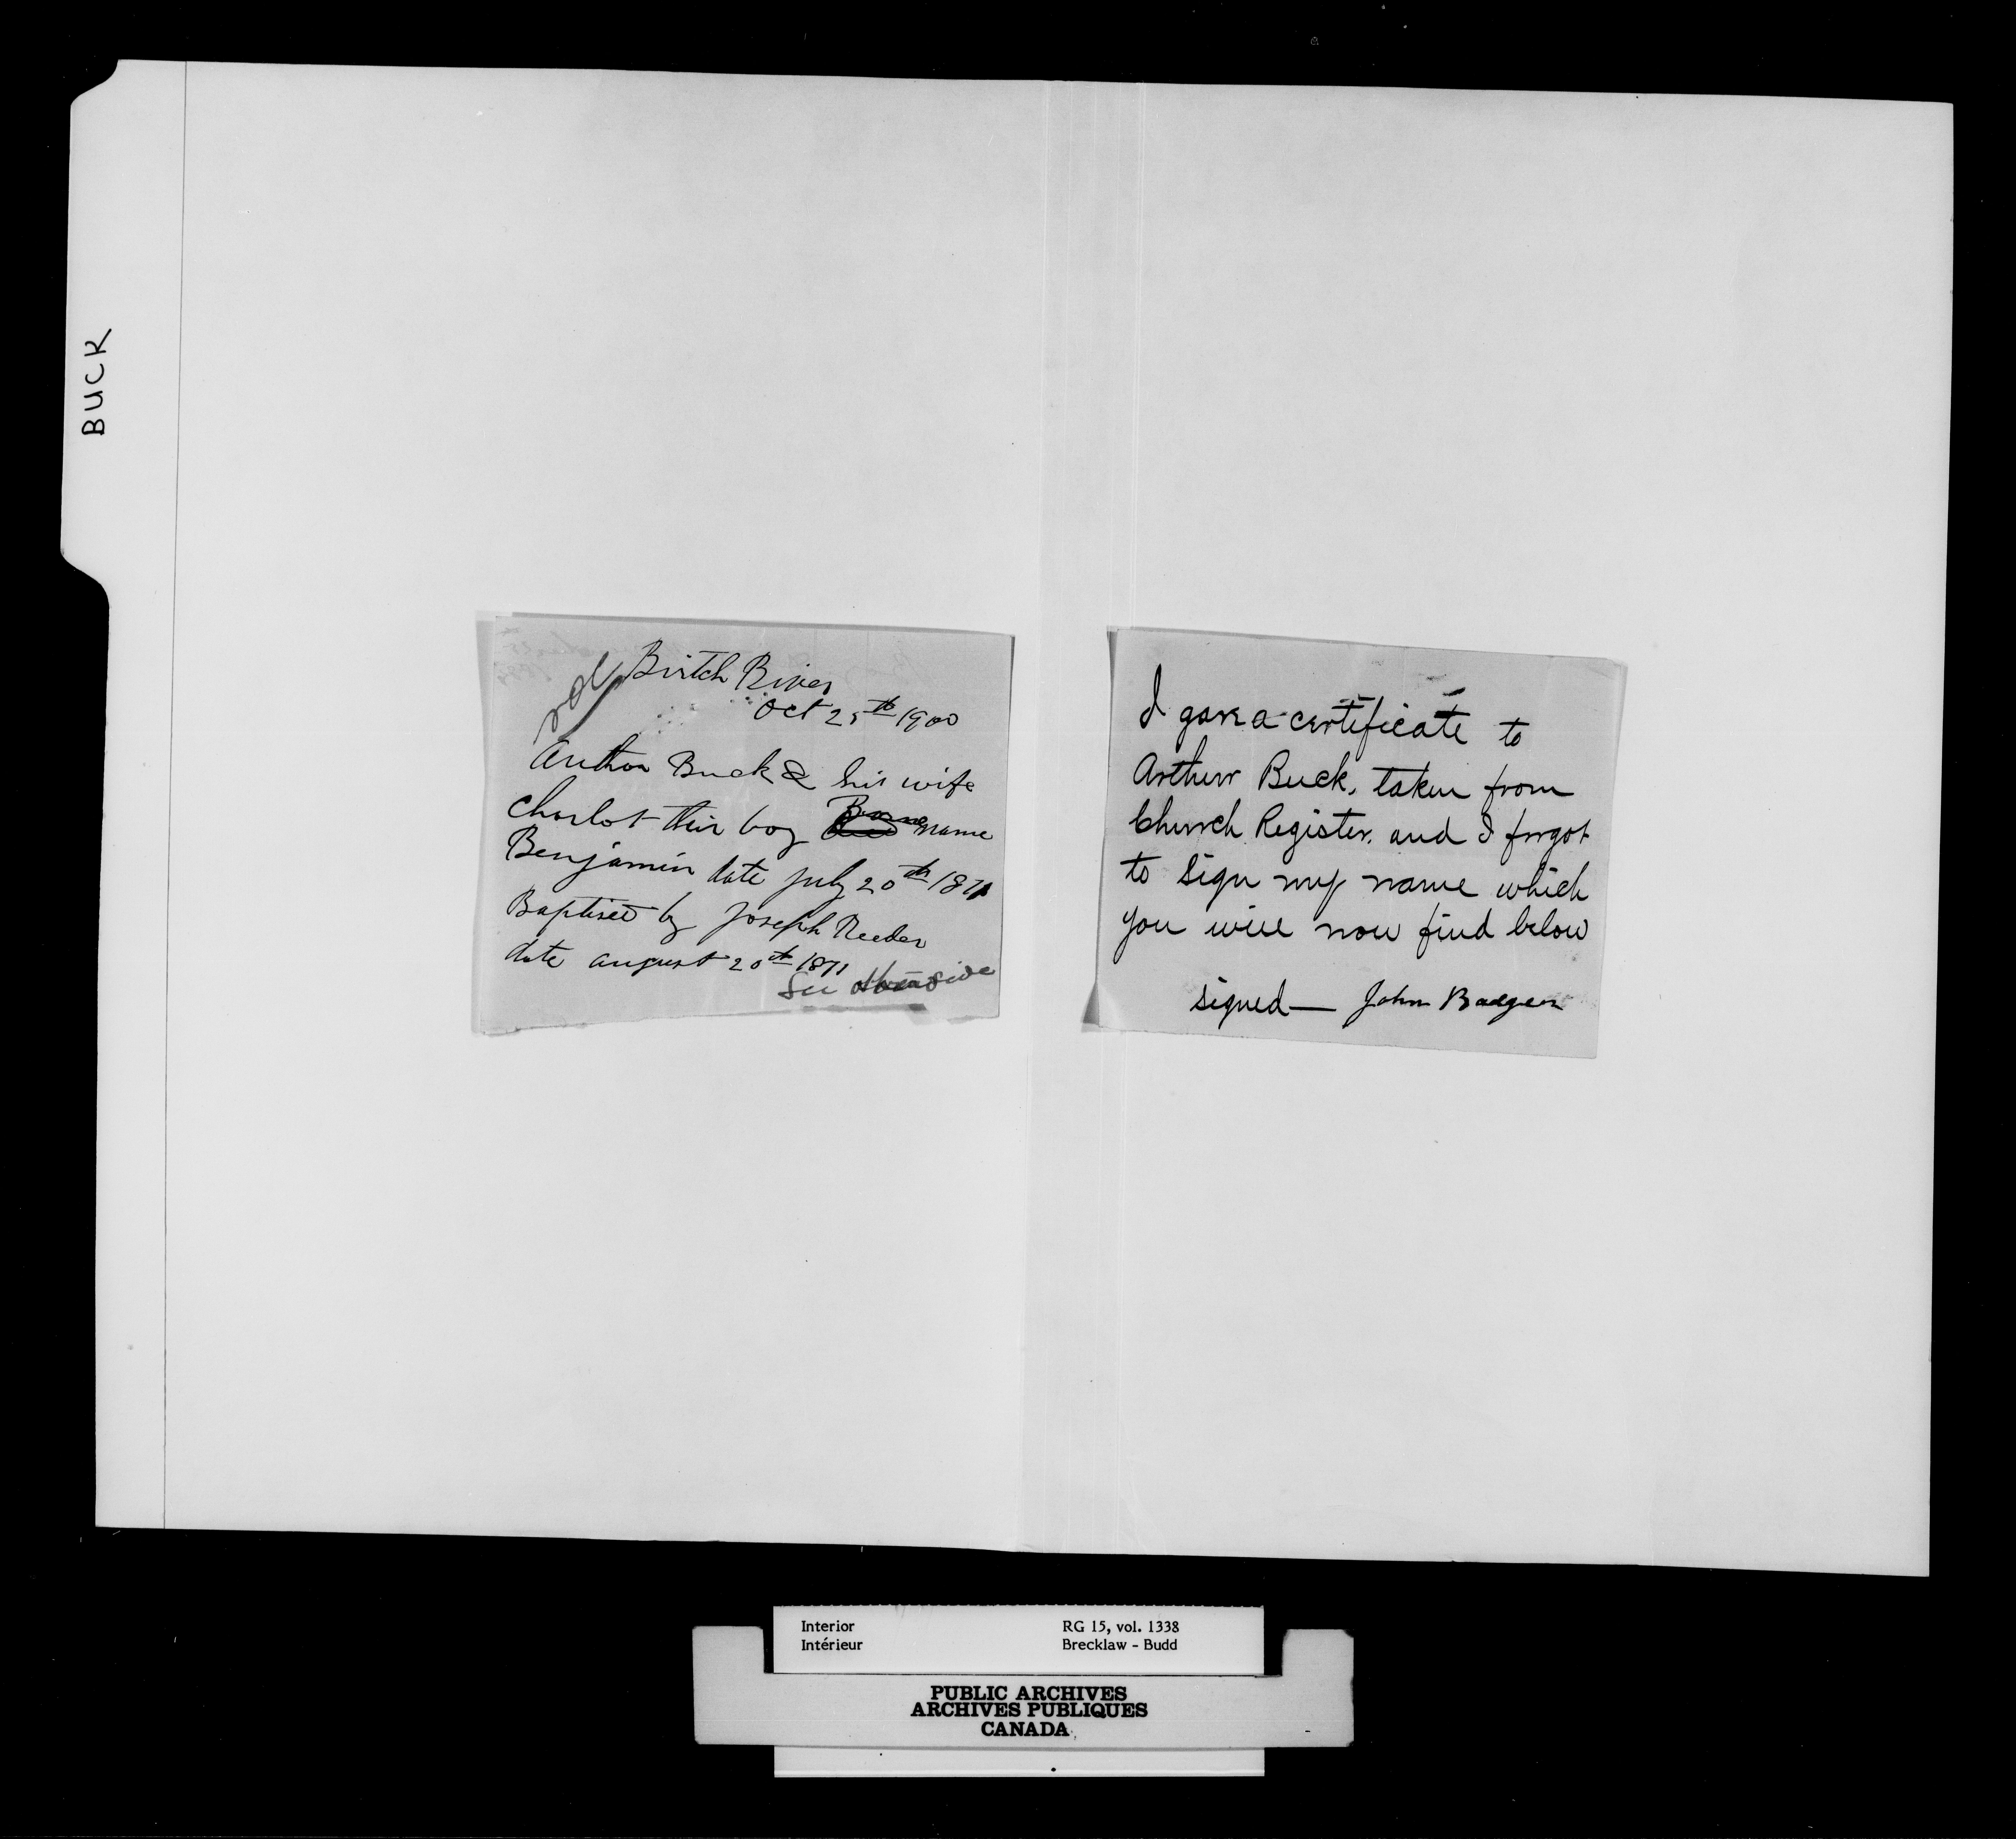 BUCK
Birtch River
Oct 25th 1900
Author Buck & his wife
Charlot their boy Borne name
Benjamin date July 20th 1871
Baptised by Joseph Reeder
date august 20th 1871
See other side
I gave a certificate to
Arthur Buck, taken from
Church Register, and I forgot
to sign my name which
you will now find below
signed— John Badger
Interior
Intérieur
RG 15, vol. 1338
Brecklaw - Budd
PUBLIC ARCHIVES
ARCHIVES PUBLIQUES
CANADA